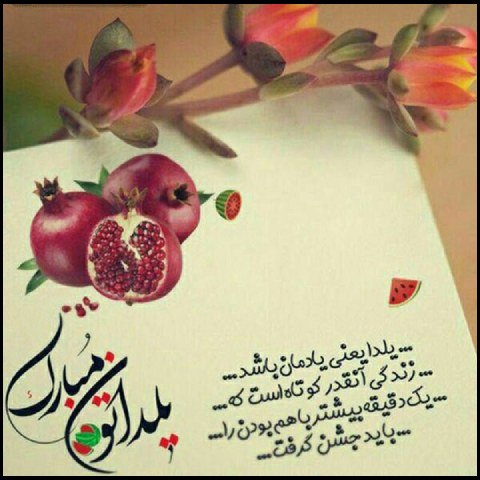 ... یلدا یعنی یادمان باشد ...
... زندگی آنقدر کوتاه است که ...
... یک دقیقه بیشتر با هم بودن را ...
... باید جشن گرفت ...
یلداتون مبارک